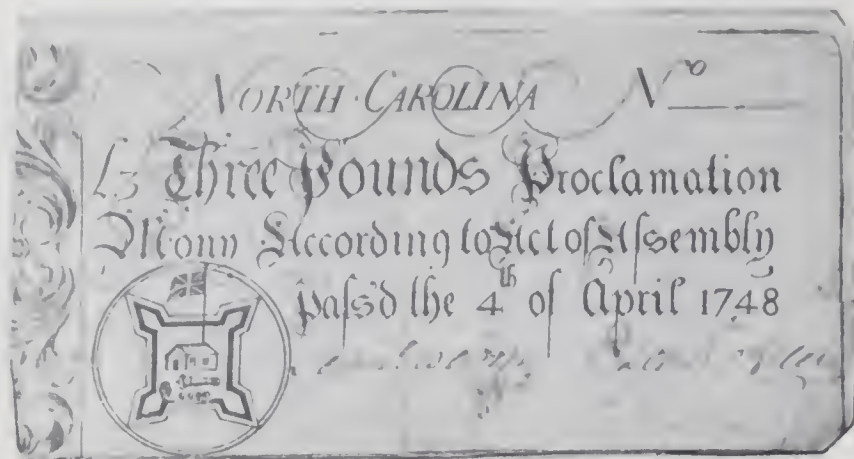 NORTH·CAROLINA No
£3 Three Pounds Proclamation
Mony According to Act of Aſsembly
paſs'd the 4th of April 1748